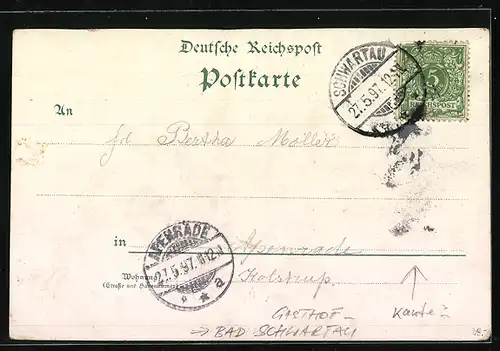 Deutsche Reichspost
Postkarte
SCHWARTAU
27.5.97.12-1N.
5
REICHSPOST
An
frl Bertha Möller
in Apenrade
Kolstrup.
Wohnung
(Straße und Hausnummer)
APENRADE
27.5.97.11-12N
* * a
GASTHOF –
→ BAD SCHWARTAU
Kante –